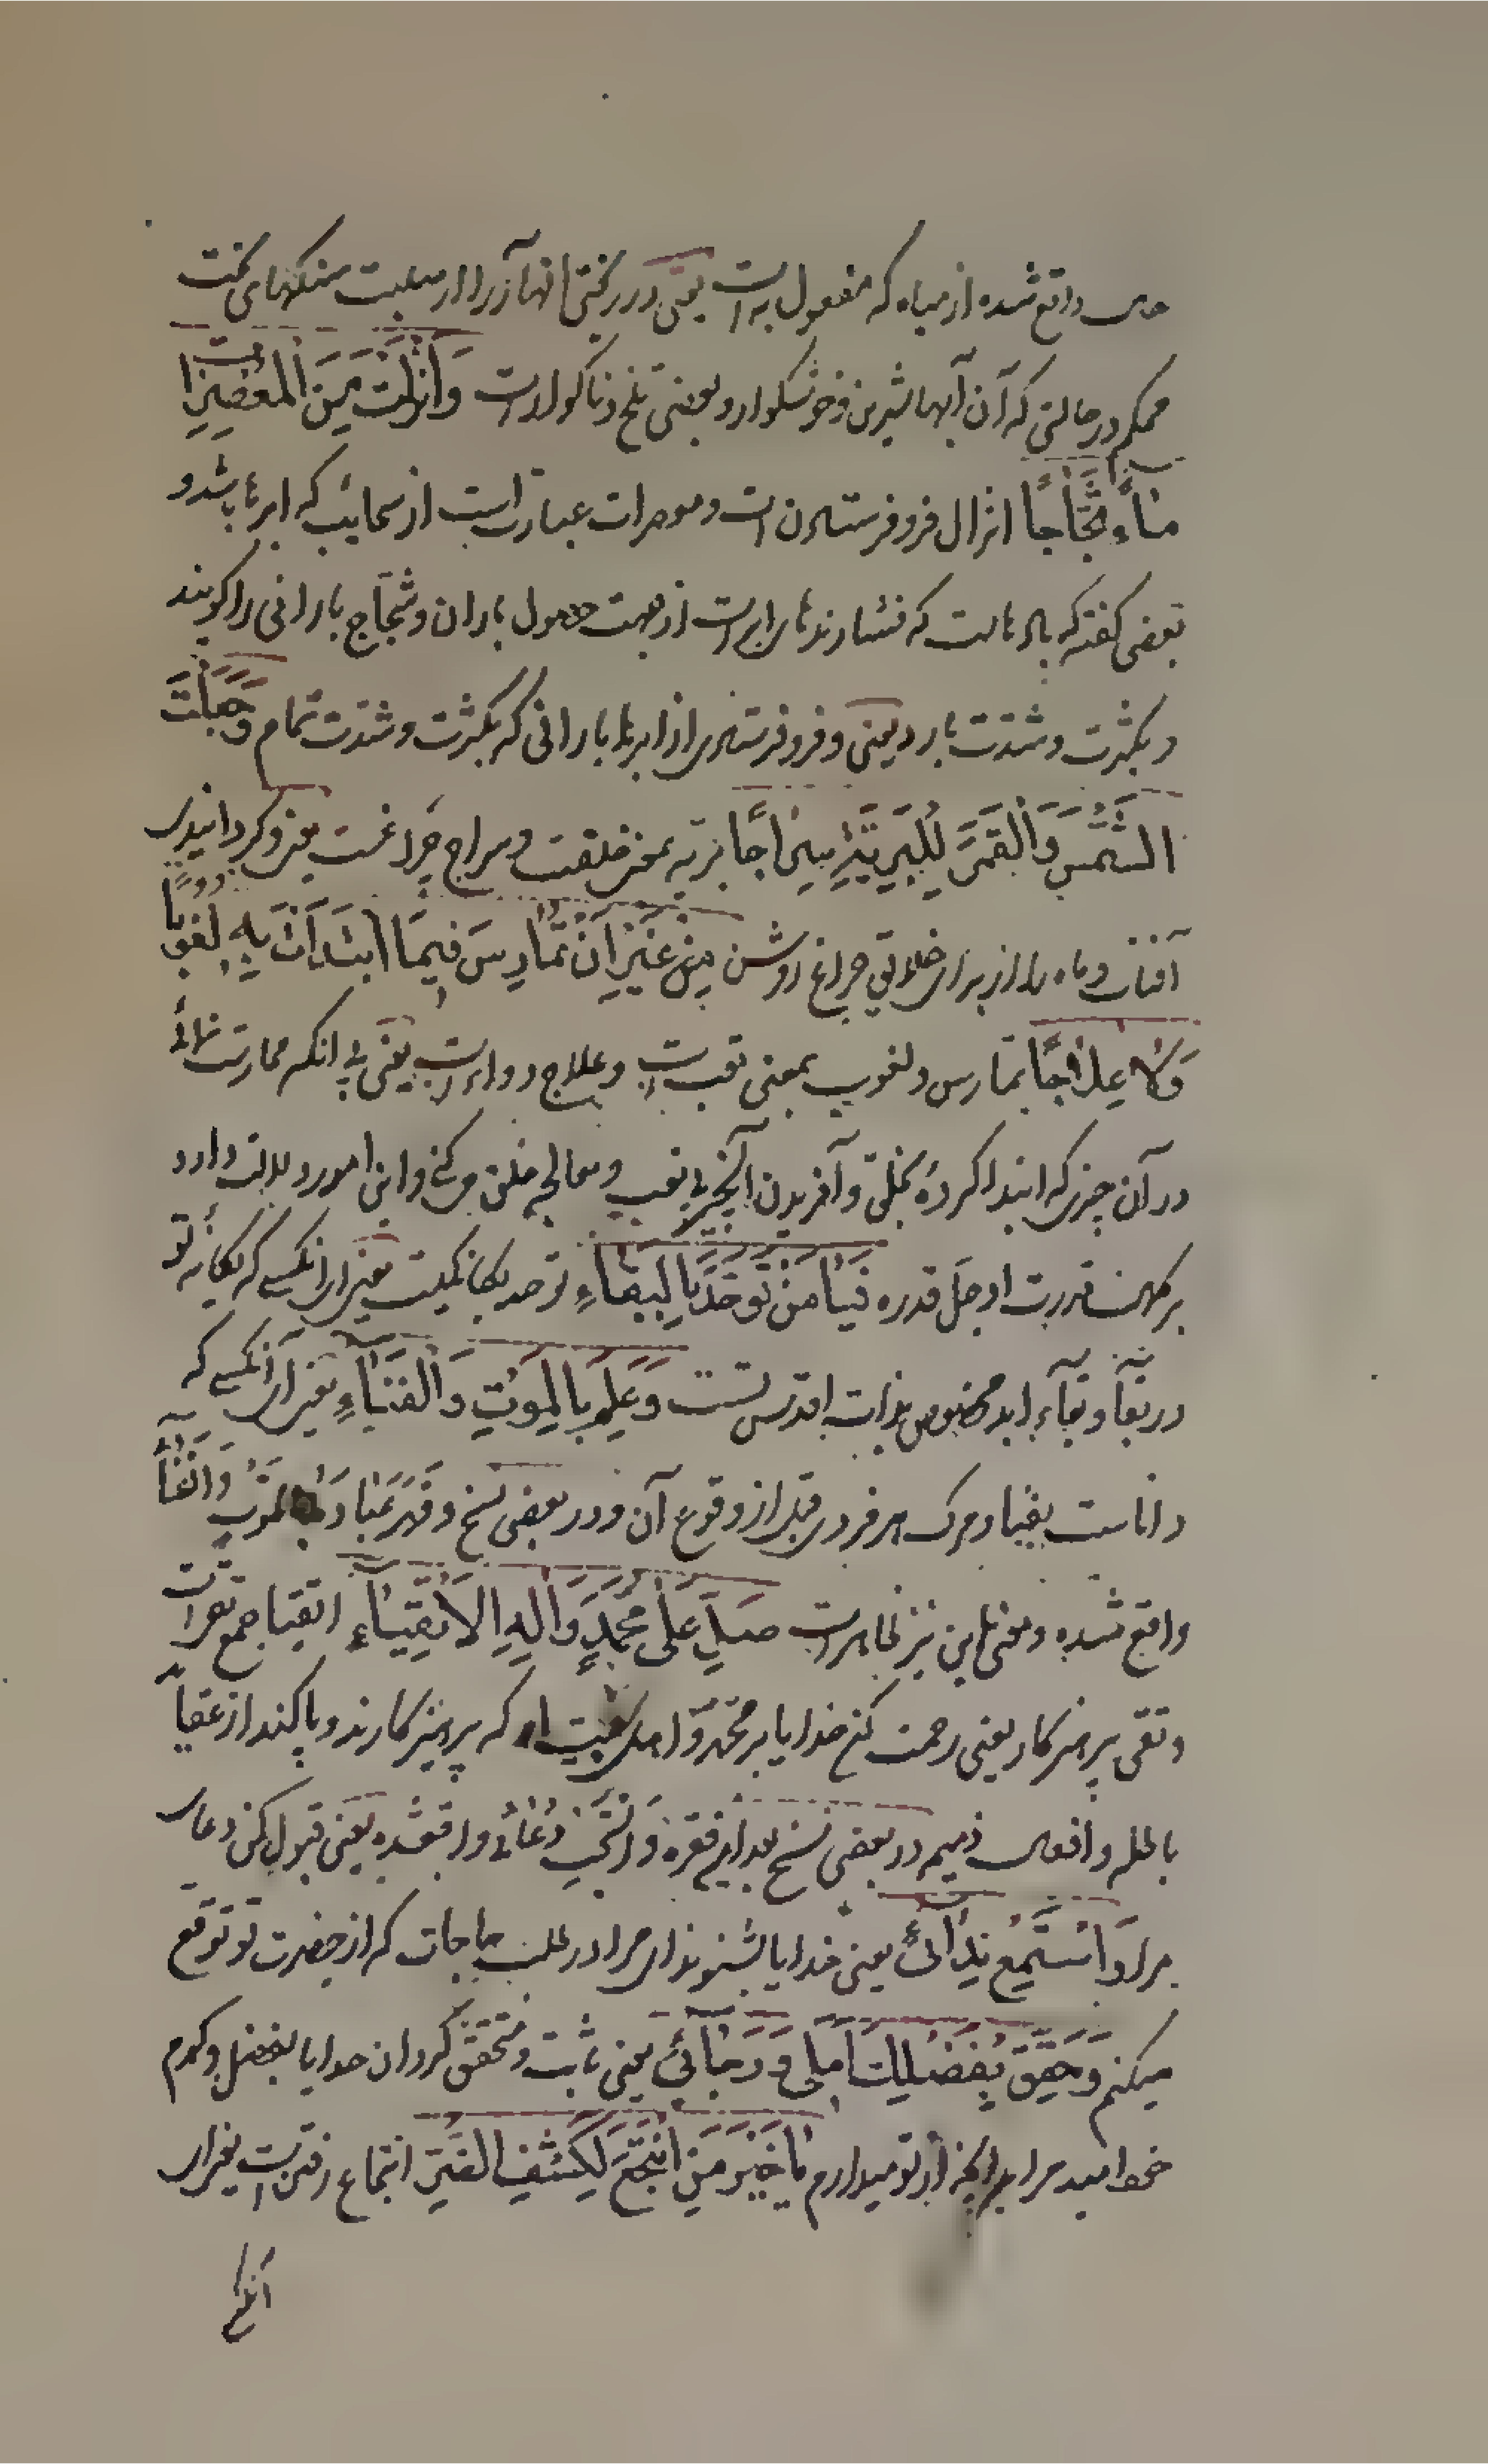 حال واقع شده از میاه که مفعول به است یعنی در ریختی انها آزرا از صلبیت سنکهای سخت
محکم در حالتی که آن آبها شیرین و خوشکوار و بعضی تلخ و ناکوار است وَاَنْزَلْتَ مِنَ الْمُعْصِرٰاتِ
مٰاءً ثَجّٰاجًا انزال فرو فرستادن است و معصرات عبارت است از سحایب که ابرها باشد و
بعضی کفته که بادهاست که فشارندهای ابر است از جهت حصول باران و ثجّاج بارانی را کویند
که بکثرت و شدّت بارد یعنی و فرو فرستادی از ابرها بارانی که بکثرت و شدّت تمام وَجَعَلْتَ
الشَّمْسَ وَالْقَمَرَ لِلْبَرِیَّةِ سِرٰاجًا بریّه بمعنی خلقت و سراج چراغست یعنی و کردانیدی
آفتاب و ماه را از برای خلایق چراغ روشن مِنْ غَیْرِ اَنْ تُمٰارِسَ فیمَا ابْتَدَاْتَ بِهِ لُغُوبًا
وَلٰا عِلٰاجًا تمارس و لغوب بمعنی تعب است و علاج دواء است یعنی بی انکه ممارست نمائی
در آن چیزی که ابتدا کردهٔ بخلق و آفریدن آنچیز بی تعب و معالجه خلق می کنی و این امور دلالت دارد
بر کمال قدرت او جلّ قدره فَیٰا مَنْ تَوَحَّدَ بِالْبَقٰاءِ توحد یکانکیست یعنی ای انکسی که یکانهٔ تو
در بقا و بقاء ابد مخصوص بذات اقدس تست وَعَلِمَ بِالْمَوْتِ وَالْفَنٰاءِ یعنی ای آنکسی که
داناست بفنا و مرک هر فردی قبل از وقوع آن و در بعضی نسخ و قَهَرَ عِبٰادَهُ بِالْمَوْتِ وَالْفَنٰاءِ
واقع شده و معنی این نیز ظاهر است صَلِّ عَلٰی مُحَمَّدٍ وَاٰلِهِ الْاَتْقِیٰاءِ اتقیا جمع تقی است
و تقی پرهیزکار یعنی رحمت کن خدایا بر محمّد و اهل بیت او که پرهیزکارند و پاکند از عقاید
باطله و افعال ذمیمه در بعضی نسخ بعد این فقره وَاسْتَجِبْ دُعٰائی واقعشده یعنی قبول کن دعای
مرا وَاسْتَمِعْ نِدٰائی یعنی خدایا بشنو ندای مرا در طلب حاجات که از حضرت تو توقع
میکنم وَحَقِّقْ بِفَضْلِکَ اَمَلی وَرَجٰائی یعنی ثابت و متحقق کردان خدایا بفضل و کرم
خود امید مرا بدانچه از تو میدارم یٰا خَیْرَ مَنِ انْتُجِعَ لِکَشْفِ الضُّرِّ انتجاع رفتن است یعنی ای
انکه